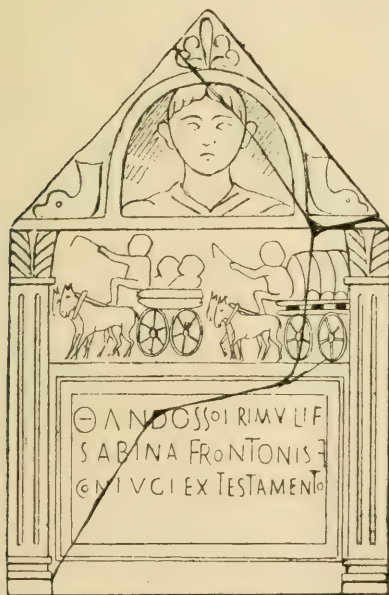 ΘANDOSSOIRIMVLIF
SABINAFRONTONISF
CONIVGIEXTESTAMENTO